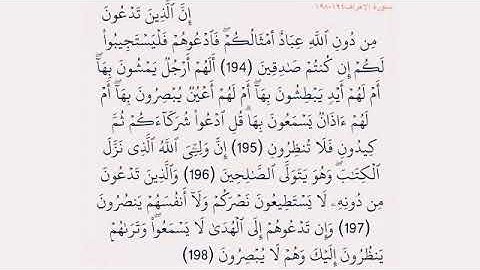 سورة الاعراف١٩٤-١٩٨
إِنَّ ٱلَّذِينَ تَدْعُونَ
مِن دُونِ ٱللَّهِ عِبَادٌ أَمْثَالُكُمْ ۖ فَٱدْعُوهُمْ فَلْيَسْتَجِيبُوا۟
لَكُمْ إِن كُنتُمْ صَٰدِقِينَ (194) أَلَهُمْ أَرْجُلٌ يَمْشُونَ بِهَآ ۖ
أَمْ لَهُمْ أَيْدٍ يَبْطِشُونَ بِهَآ ۖ أَمْ لَهُمْ أَعْيُنٌ يُبْصِرُونَ بِهَآ ۖ أَمْ
لَهُمْ ءَاذَانٌ يَسْمَعُونَ بِهَا ۗ قُلِ ٱدْعُوا۟ شُرَكَآءَكُمْ ثُمَّ
كِيدُونِ فَلَا تُنظِرُونِ (195) إِنَّ وَلِـِّۧىَ ٱللَّهُ ٱلَّذِى نَزَّلَ
ٱلْكِتَٰبَ ۖ وَهُوَ يَتَوَلَّى ٱلصَّٰلِحِينَ (196) وَٱلَّذِينَ تَدْعُونَ
مِن دُونِهِۦ لَا يَسْتَطِيعُونَ نَصْرَكُمْ وَلَآ أَنفُسَهُمْ يَنصُرُونَ
(197) وَإِن تَدْعُوهُمْ إِلَى ٱلْهُدَىٰ لَا يَسْمَعُوا۟ ۖ وَتَرَىٰهُمْ
يَنظُرُونَ إِلَيْكَ وَهُمْ لَا يُبْصِرُونَ (198)